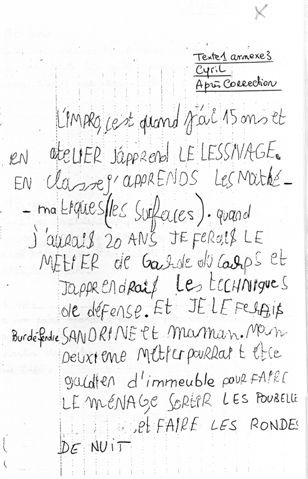 Textes annexes
Cyril
Après Correction
L'IMPRO, c'est quand j'ai 15 ans et
EN atELIER J'apprend LE LESSIVAGE.
EN classe j'APPRENDS Les Mathé-
-matiques (les Surfaces). quand
j'aurais 20 ANS JE FERAIS LE
METIER de Garde du Corps et
J'apprendrais les techniques
de défense. Et JE LE FERAIS
Pour défendre SANDRINE et maman. Mon
deuxième métier pourrait être
gardien d'immeuble pour FAIRE
LE MÉNAGE SORTIR LES POUBELLE
et FAIRE LES RONDES
DE NUIT